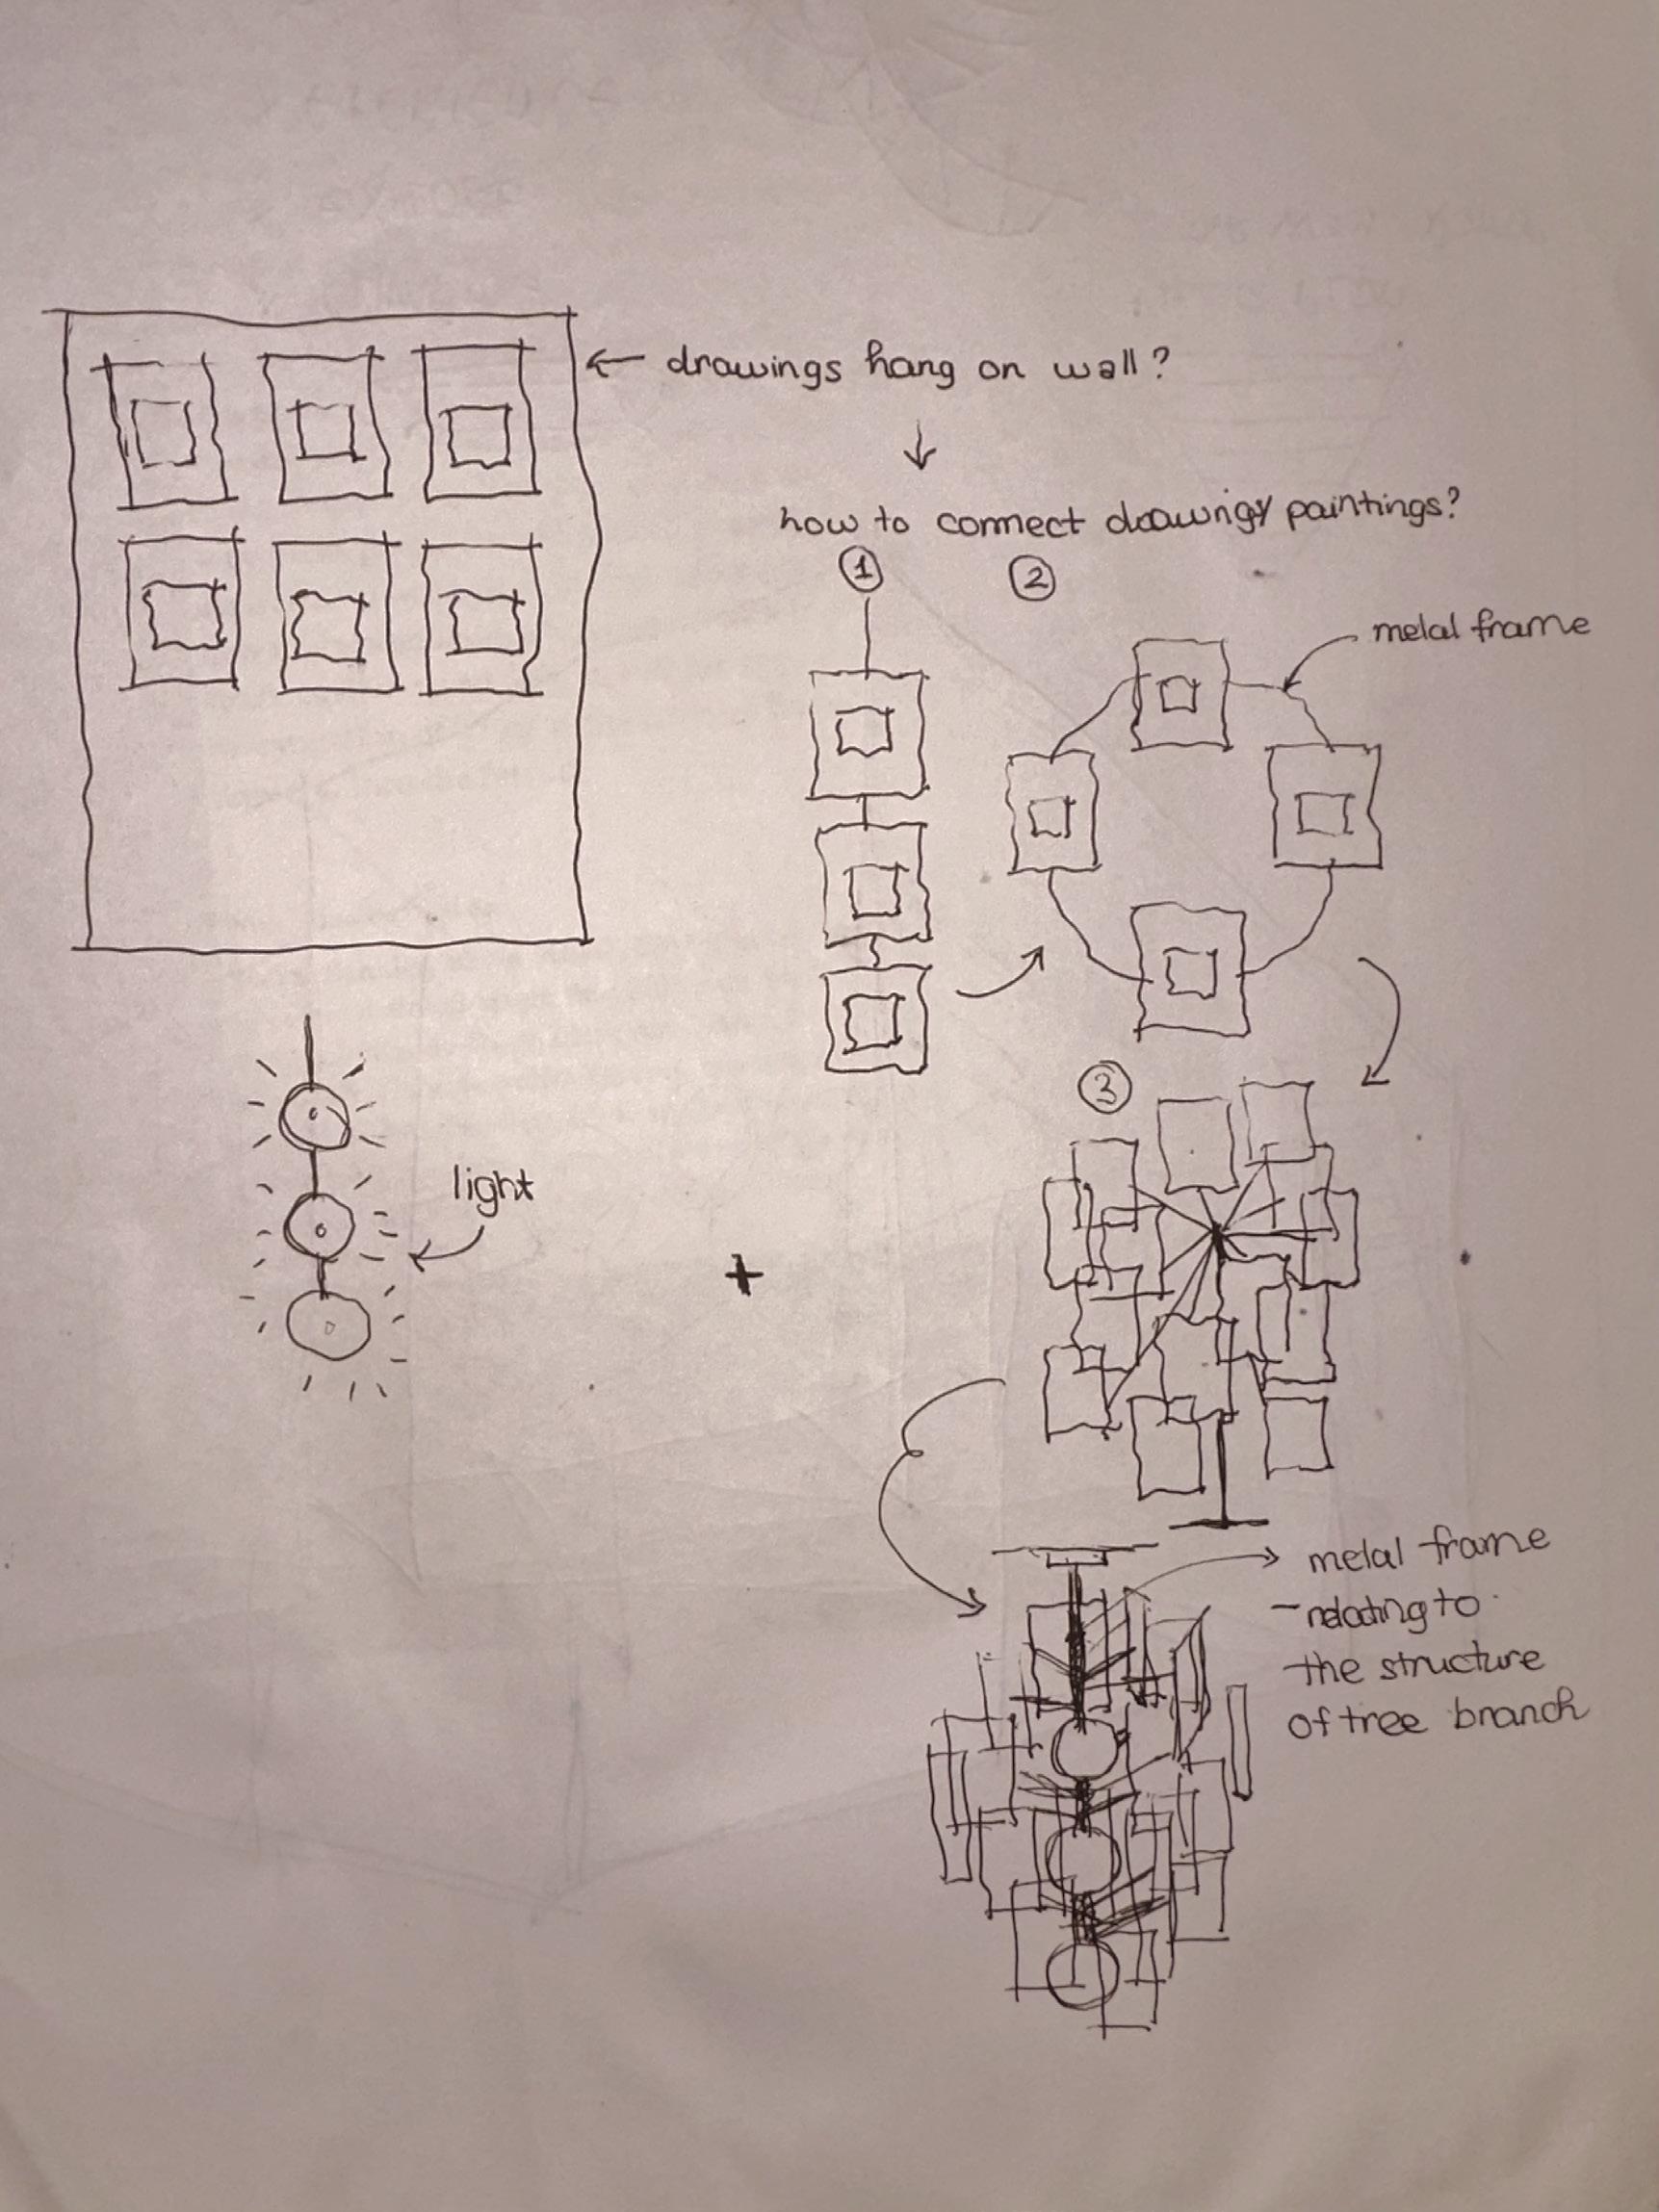 drawings hang on wall?
how to connect drawings/ paintings?
1
2
metal frame
3
light
+
metal frame
- relating to
the structure
of tree branch